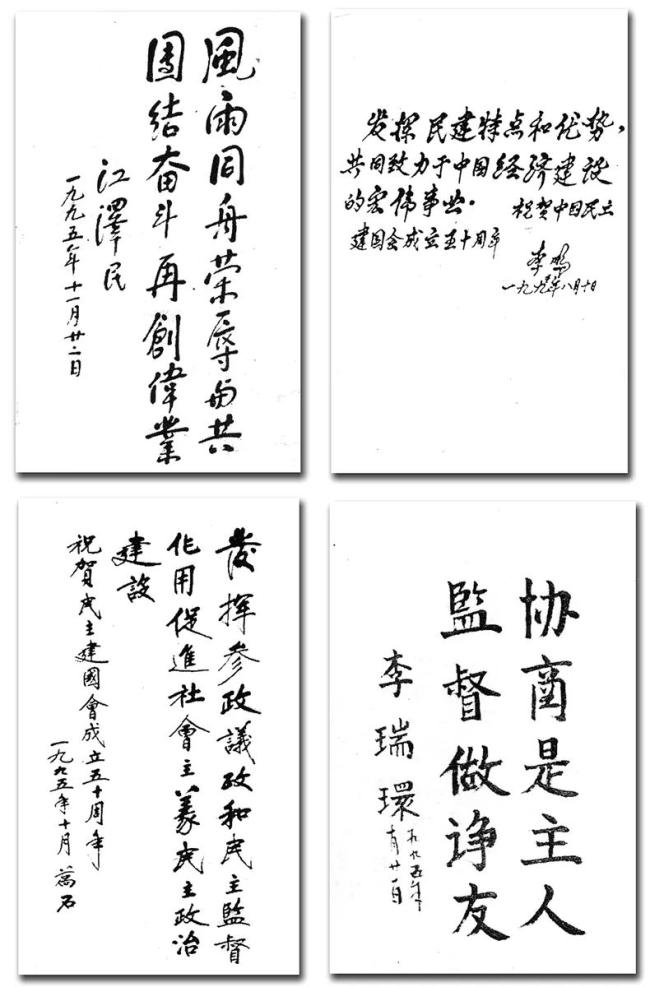 風雨同舟荣辱与共
團结奋斗再創偉業
江澤民
一九九五年十一月廿二日
发挥民建特点和优势,
共同致力于中国经济建设
的宏伟事业. 祝贺中国民主
建国会成立五十周年
李鹏
一九九五年八月十日
發揮参政議政和民主監督
作用促進社會主義民主政治
建設
祝賀民主建國會成立五十周年
一九九五年十月 萬石
协商是主人
監督做诤友
李瑞環
一九九五年